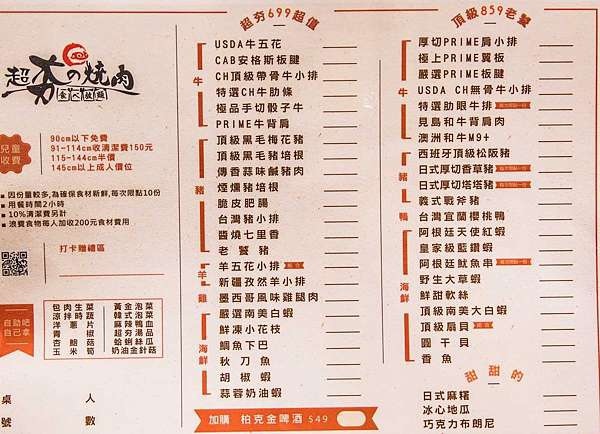 超夯の燒肉
食べ放題
兒童
收費
90cm以下免費
91-114cm收清潔費150元
115-144cm半價
145cm以上成人價位
■ 因份量較多,為確保食材新鮮,每次限點10份
■ 用餐時間2小時
■ 10%清潔費另計
■ 浪費食物每人加收200元食材費用
打卡贈禮區
自助吧
自己拿
包肉生菜 黃金泡菜
涼拌時蔬 韓式泡菜
洋蔥片 麻辣鴨血
青椒 超夯湯品
杏鮑菇 蛤蜊絲瓜
玉米筍 奶油金針菇
桌號
人數
超夯699超值
牛
USDA牛五花
CAB安格斯板腱
CH頂級帶骨牛小排
特選CH牛肋條
極品手切骰子牛
PRIME牛背肩
豬
頂級黑毛梅花豬
頂級黑毛豬培根
傳香蒜味鹹豬肉
煙燻豬培根
脆皮肥腸
台灣豬小排
醬燒七里香
老饕豬
羊
羊五花小排
新疆孜然羊小排
雞
墨西哥風味雞腿肉
海鮮
嚴選南美白蝦
鮮凍小花枝
鯛魚下巴
秋刀魚
胡椒蝦
蒜蓉奶油蝦
加購 柏克金啤酒 $49
頂級859老饕
牛
厚切PRIME肩小排
極上PRIME翼板
嚴選PRIME板腱
USDA CH無骨牛小排
特選肋眼牛排
見島和牛背肩肉
澳洲和牛M9+
豬
西班牙頂級松阪豬
日式厚切香草豬
日式厚切塔塔豬
義式戰斧豬
鴨
台灣宜蘭櫻桃鴨
海鮮
阿根廷天使紅蝦
皇家級藍鑽蝦
阿根廷魷魚串
野生大草蝦
鮮甜軟絲
頂級南美大白蝦
頂級扇貝
圓干貝
香魚
甜甜的
日式麻糬
冰心地瓜
巧克力布朗尼